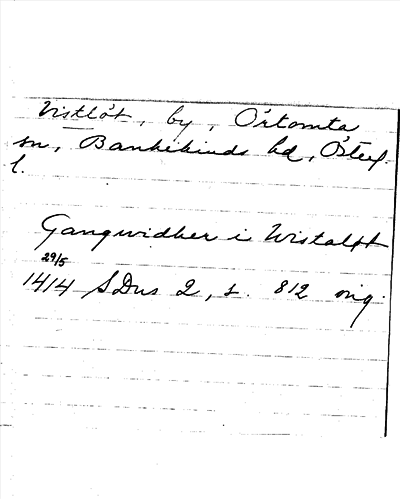 Vistlöt, by, Örtomta
sn, Bankekinds hd, Östergl.
l.
Gangwidher i Wistalöt
29/5
1414 SDns 2, s. 812 orig.